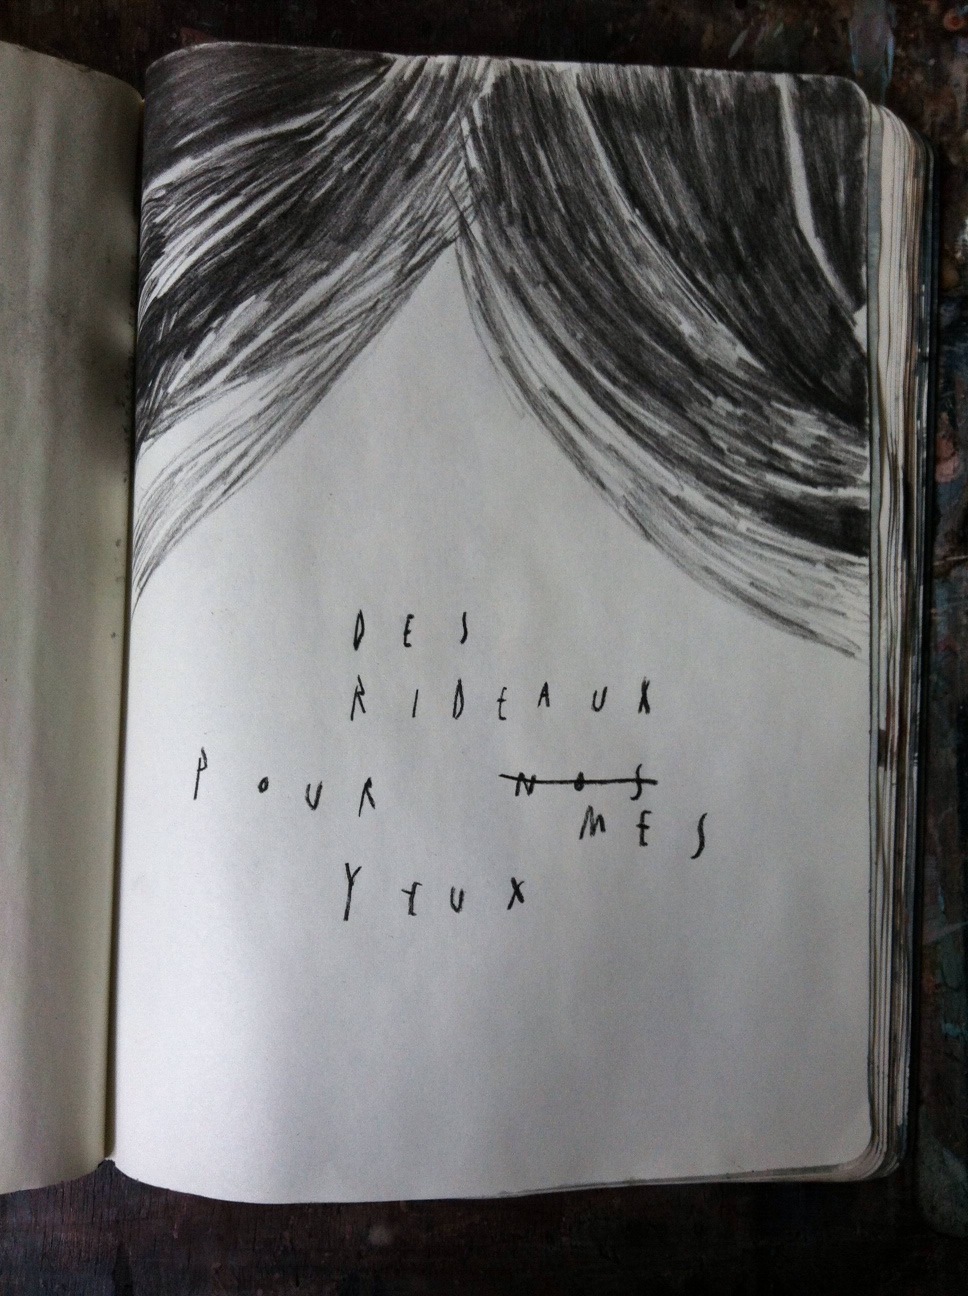 DES
RIDEAUX
POUR NOS
MES
YEUX